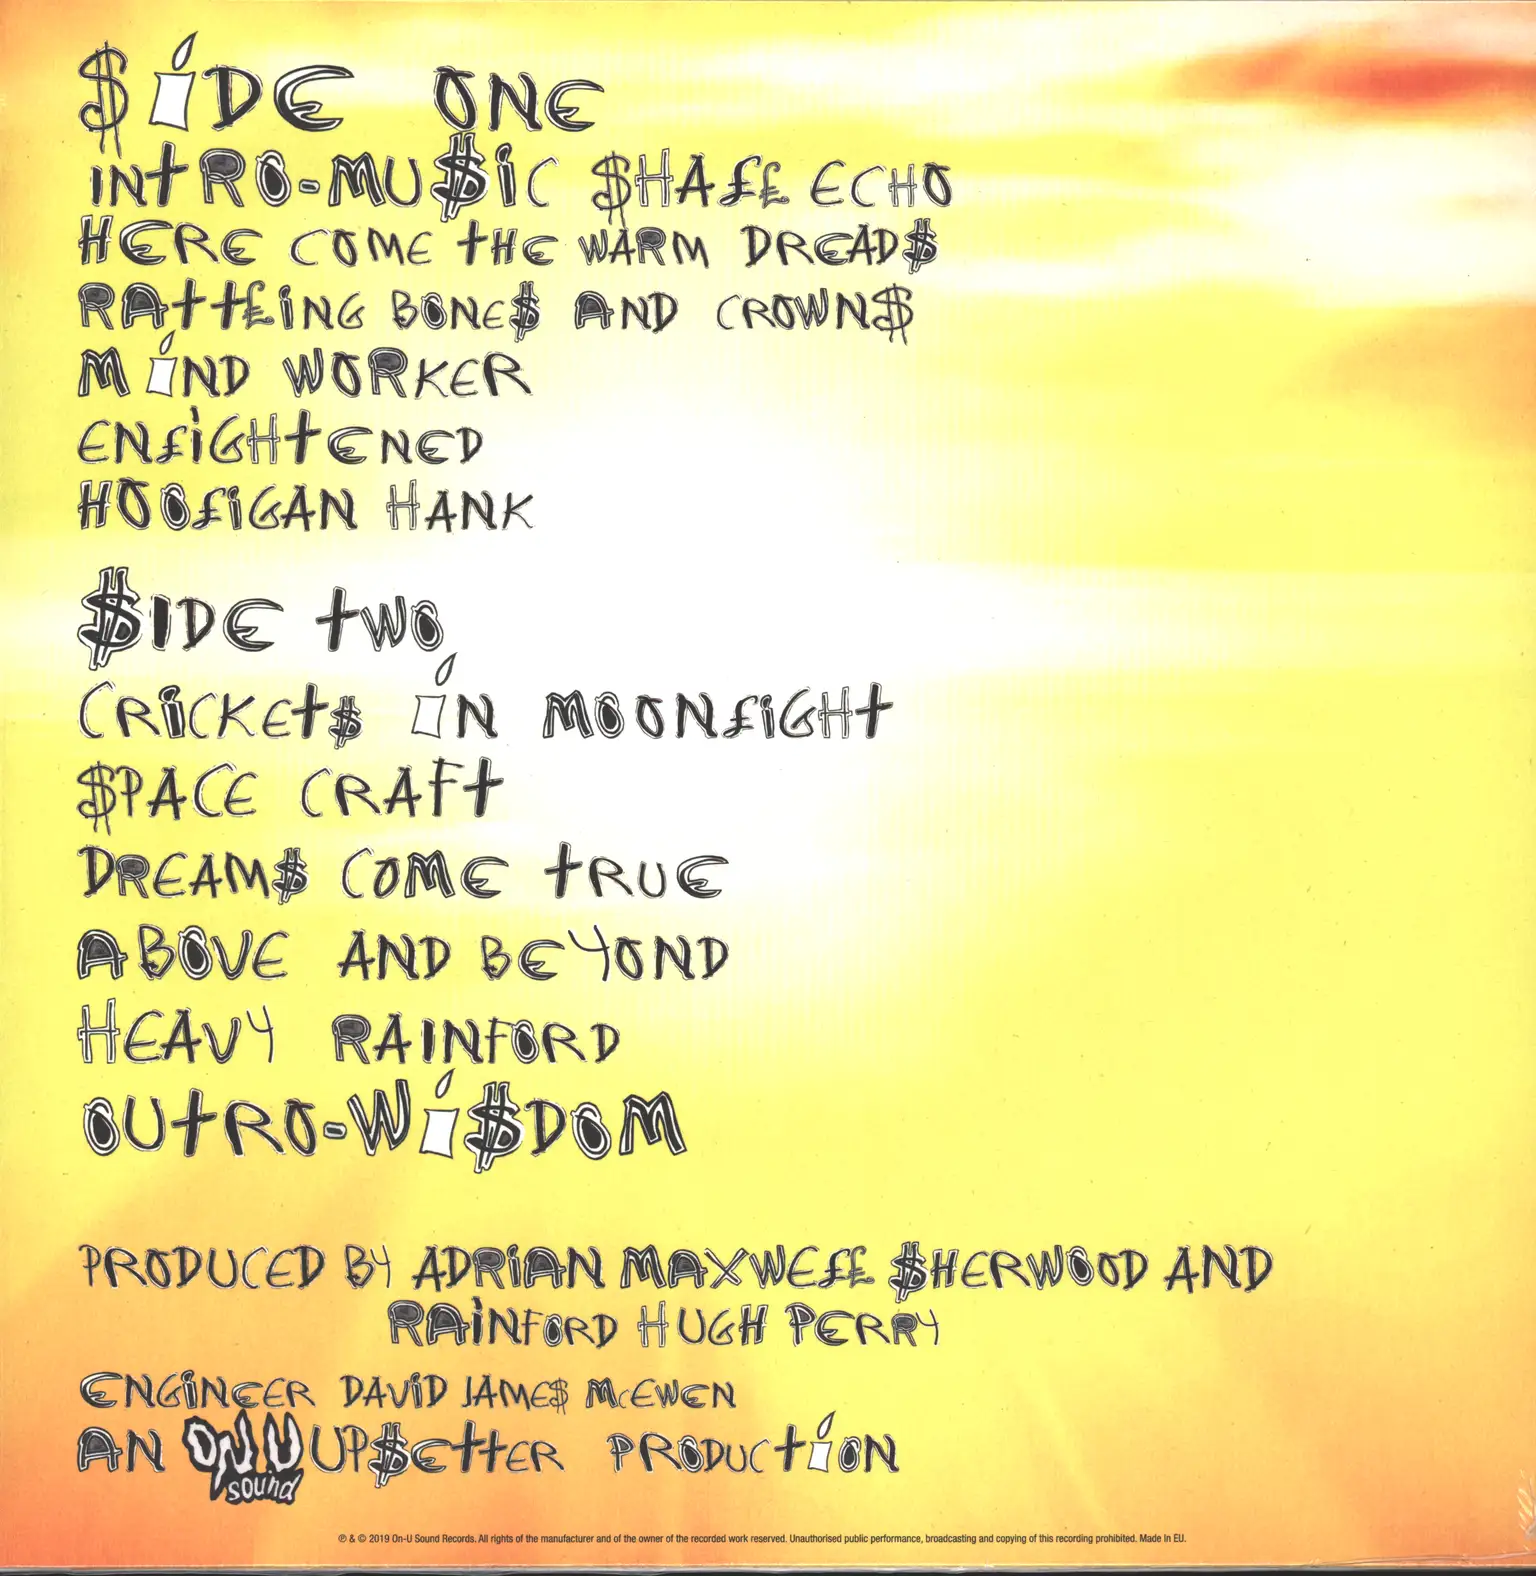 $iDE ONE
INTRO-MU$IC $HA££ ECHO
HERE COME THE WARM DREAD$
RATT£ING BONE$ AND CROWN$
MIND WORKER
EN£IGHTENED
HOO£IGAN HANK
$IDE TWO
CRICKET$ IN MOON£IGHT
$PACE CRAFT
DREAM$ COME TRUE
ABOVE AND BEYOND
HEAVY RAINFORD
OUTRO-WI$DOM
PRODUCED BY ADRIAN MAXWE££ $HERWOOD AND
RAINFORD HUGH PERRY
ENGINEER DAVID JAME$ McEWEN
AN ON U SOUND UP$ETTER PRODUCTION
℗ & © 2019 On-U Sound Records. All rights of the manufacturer and of the owner of the recorded work reserved. Unauthorised public performance, broadcasting and copying of this recording prohibited. Made In EU.